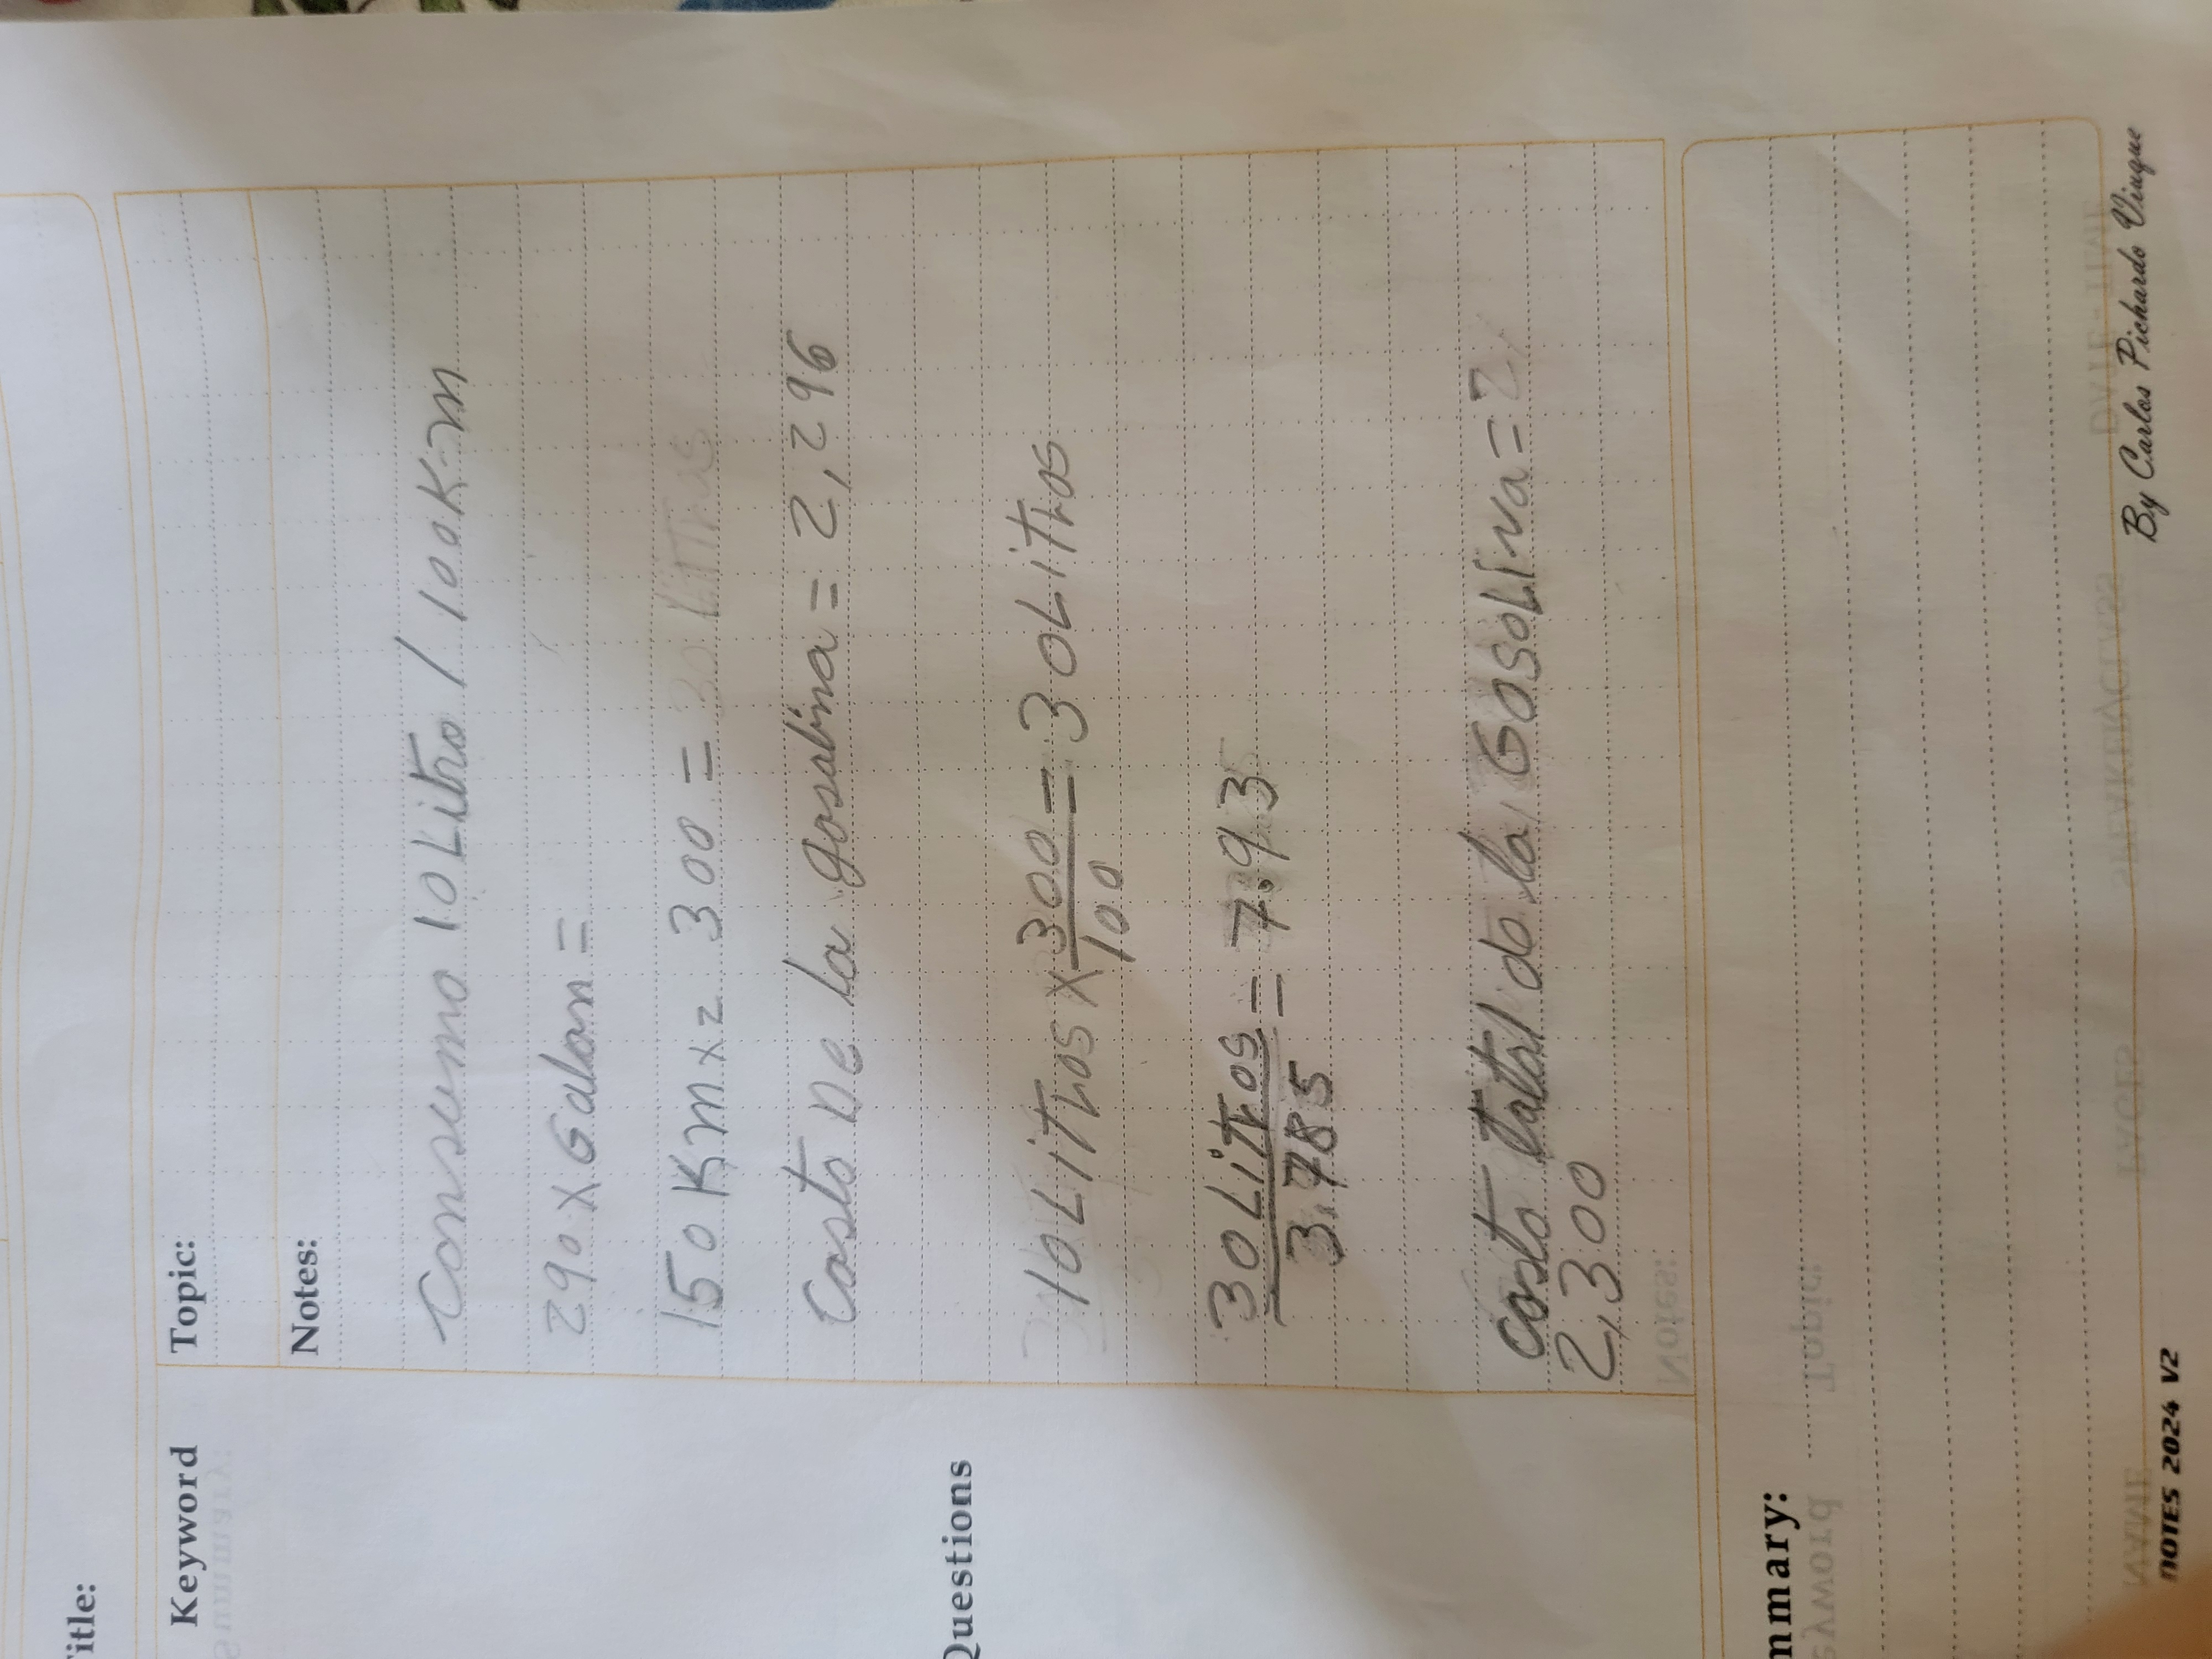 Title:
Keyword
Topic:
Notes:
Consumo 10 Litro / 100Km
290 x Galon =
150 Km x 2 300 = 30 litros
Costo De la gasolina = 2,296
Questions
10 LiTros x 300/100 = 30 LiTros
30 LiTros/3.785 = 7.93
costo total de la GosoLiNa = 2,
2,300
mmary:
NOTES 2024 V2
By Carlos Pichardo Viuque